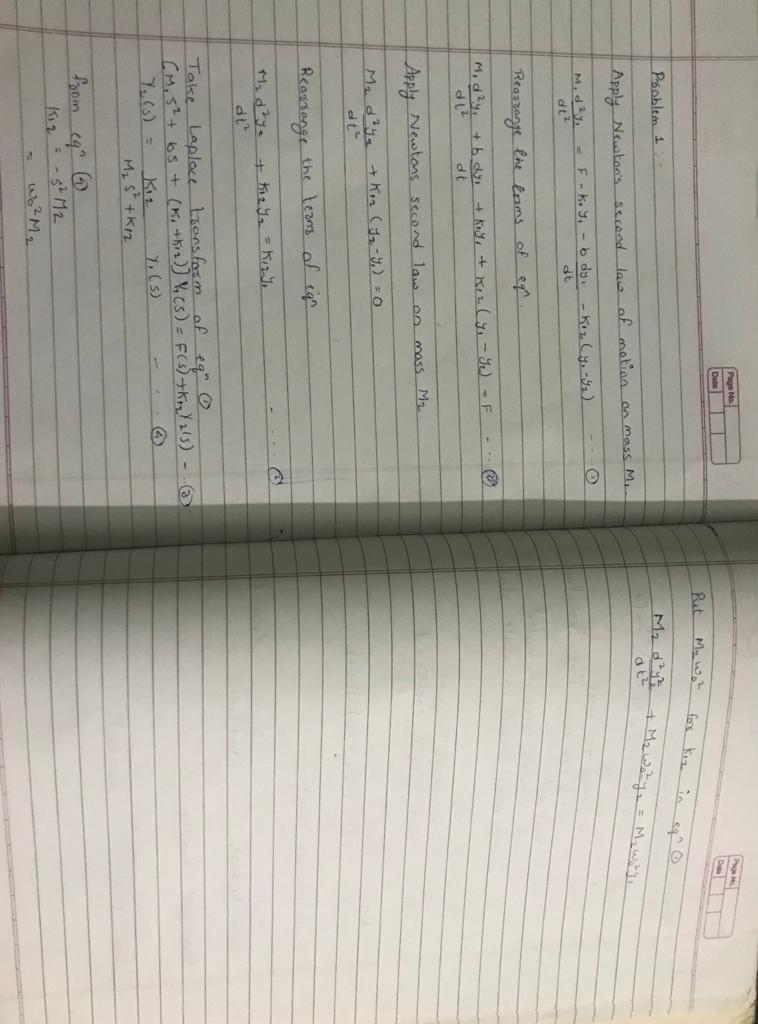 Page No.
Date
Problem 1 :-
Apply Newton's second law of motion on mass M1.
M1 d²y1/dt² = F - K1y1 - b dy1/dt - K12 (y1-y2) - - - ①
Rearrange the terms of eqn.
M1 d²y1/dt² + b dy1/dt + K1y1 + K12 (y1 - y2) = F - ...
Apply Newtons second law on mass M2.
M2 d²y2/dt² + K12 (y2-y1) = 0
Rearrange the terms of eqn
M2 d²y2/dt² + K12 y2 = K12 y1 - . . . . ②
Take Laplace transform of eqn ①
[M1 S² + bS + (K1 + K12)] Y1(S) = F(S) + K12 Y2(S) - .. ③
Y2(S) = K12/M2 S² + K12 Y1(S) - - . . . ④
from eqn ④
K12 = -S² M2
= ω0² M2
Page No.
Date
Put M2 ω0² for K12 in eqn
M2 d²y2/dt² + M2 ω0² y2 = M2 ω0² y1